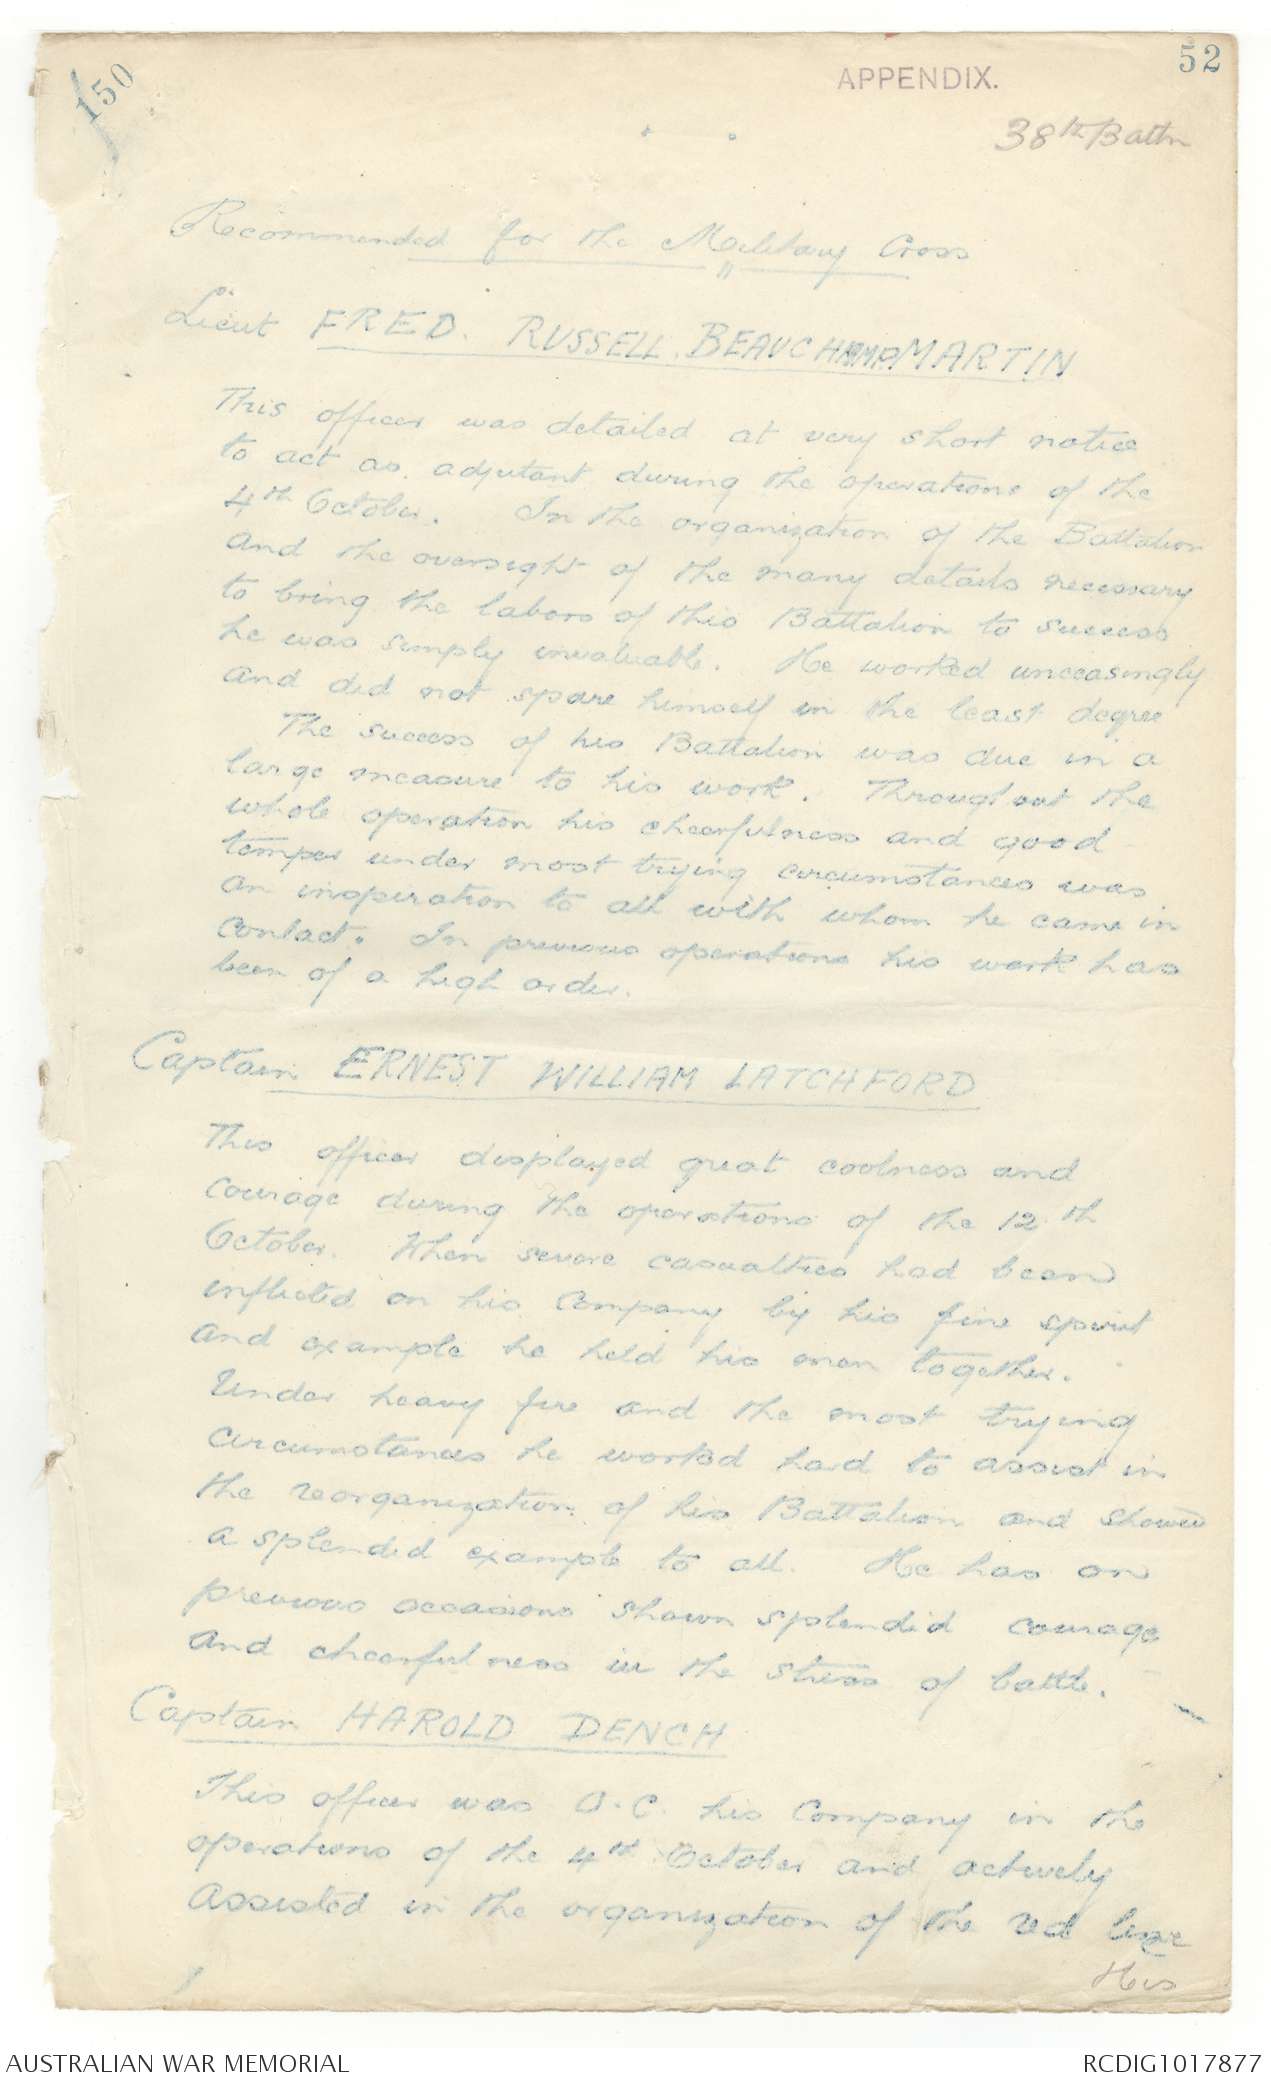 150
52
APPENDIX.
38th Battn
Recommended for the Military Cross
Lieut FRED. RUSSELL. BEAUCHAMP. MARTIN
This officer was detailed at very short notice
to act as adjutant during the operations of the
4th October. In the organization of the Battalion
and the oversight of the many details necessary
to bring the labors of this Battalion to success
he was simply invaluable. He worked unceasingly
and did not spare himself in the least degree
The success of his Battalion was due in a
large measure to his work. Throughout the
whole operation his cheerfulness and good
temper under most trying circumstances was
an inspiration to all with whom he came in
contact. In previous operations his work has
been of a high order.
Captain ERNEST WILLIAM LATCHFORD
This officer displayed great coolness and
courage during the operations of the 12th
October. When severe casualties had been
inflicted on his Company by his fine spirit
and example he held his men together.
Under heavy fire and the most trying
circumstances he worked hard to assist in
the reorganization of his Battalion and showed
a splendid example to all. He has on
previous occasions shown splendid courage
and cheerfulness in the stress of battle.
Captain HAROLD DENCH
This officer was O.C. his Company in the
operations of the 4th October and actively
assisted in the organization of the red line
His
AUSTRALIAN WAR MEMORIAL
RCDIG1017877